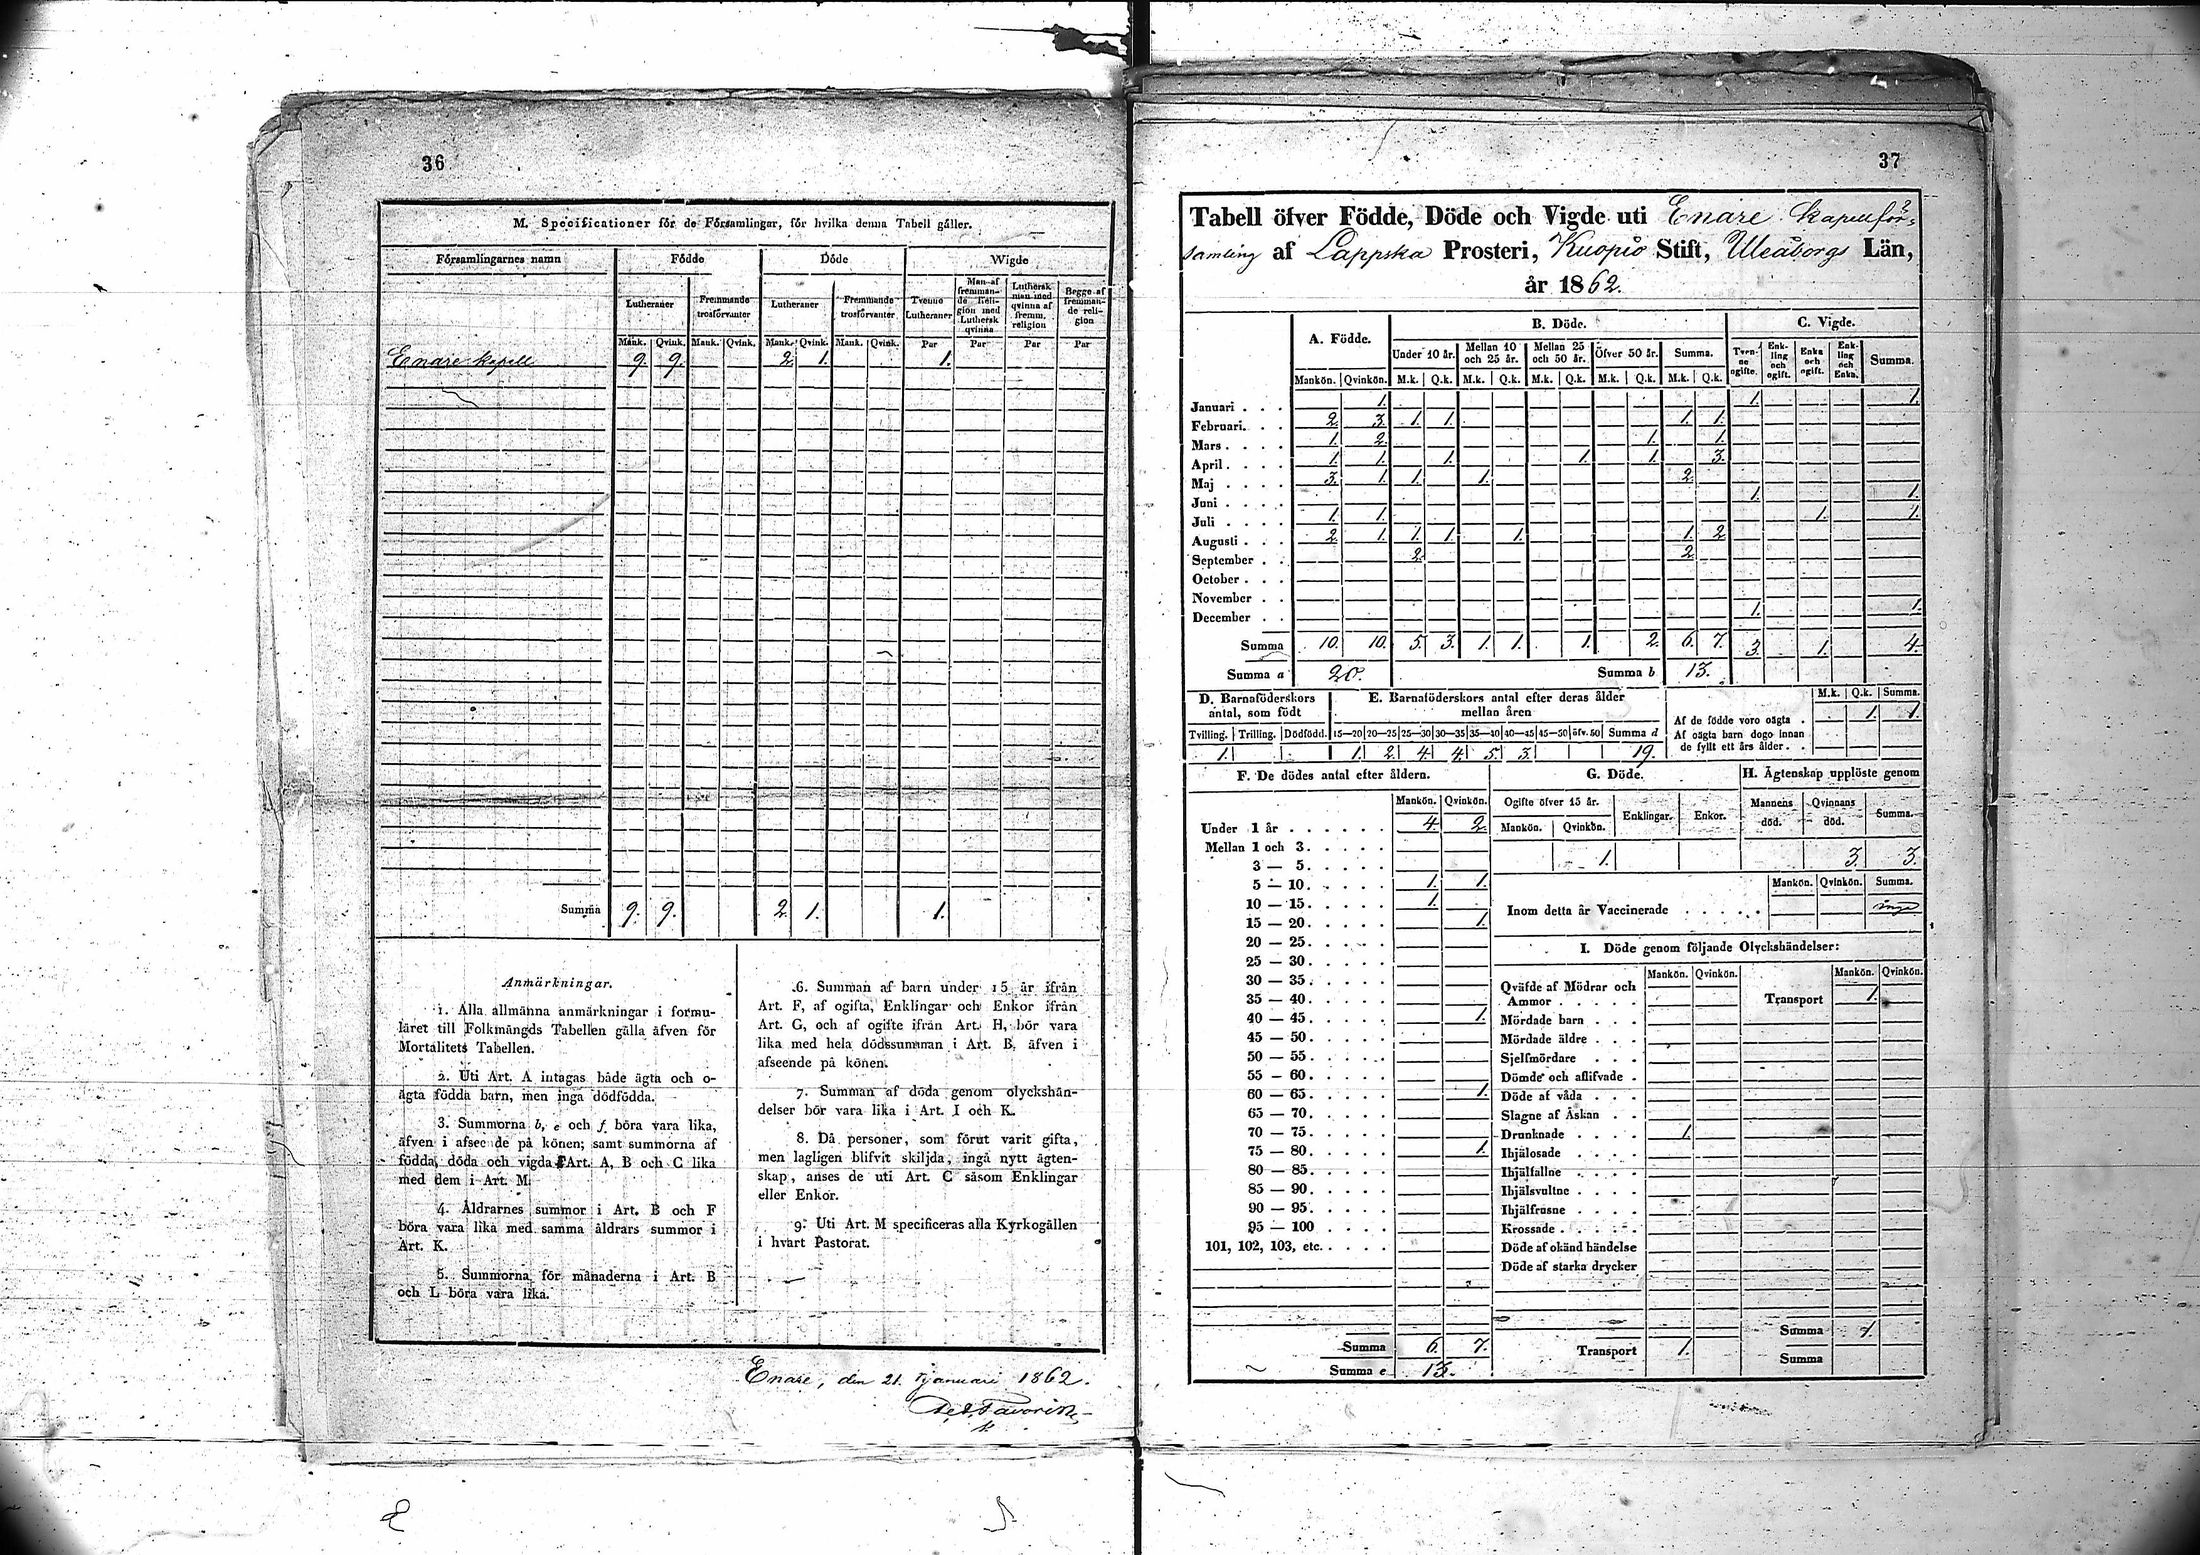 36
M. Specificationer för de Församlingar, för hvilka denna Tabell gäller.
Församlingarnes namn Födde Döde Wigde
Lutheraner Fremmande trosförvanter Lutheraner Fremmande trosförvanter Tvenne Lutheraner Man af fremmande Religion med Luthersk qvinna Luthersk man med qvinna af fremm. religion Begge af fremmande religion
Mank. Qvink. Mank. Qvink. Mank. Qvink. Mank. Qvink. Par Par Par Par
Enare kapell 9. 9. 2. 1. 1.
Summa 9. 9. 2. 1. 1.
Anmärkningar.
1. Alla allmänna anmärkningar i formu-
läret till Folkmängds Tabellen gälla äfven för
Mortalitets Tabellen.
2. Uti Art. A intagas både ägta och o-
ägta födda barn, men inga dödfödda.
3. Summorna b, e och f böra vara lika,
äfven i afseende på könen; samt summorna af
födda, döda och vigda i Art. A, B och C lika
med dem i Art. M.
4. Åldrarnes summor i Art. B och F
böra vara lika med samma åldrars summor i
Art. K.
5. Summorna för månaderna i Art. B
och L böra vara lika.
6. Summan af barn under 15 år ifrån
Art. F, af ogifta, Enklingar och Enkor ifrån
Art. G, och af ogifte ifrån Art. H, bör vara
lika med hela dödssumman i Art. B, äfven i
afseende på könen.
7. Summan af döda genom olyckshän-
delser bör vara lika i Art. I och K.
8. Då personer, som förut varit gifta,
men lagligen blifvit skiljda, ingå nytt ägten-
skap, anses de uti Art. C såsom Enklingar
eller Enkor.
9. Uti Art. M specificeras alla Kyrkogällen
i hvart Pastorat.
Enare, den 21. Januari 1862.
37
Tabell öfver Födde, Döde och Vigde uti Enare kapellför-
samling af Lappska Prosteri, Kuopio Stift, Uleåborgs Län,
år 1862.
A. Födde. B. Döde. C. Vigde.
Under 10 år. Mellan 10 och 25 år. Mellan 25 och 50 år. Öfver 50 år. Summa. Tvenne ogifte. Enkling och ogift. Enka och ogift. Enkling och Enka. Summa.
Mankön. Qvinkön. M.k. Q.k. M.k. Q.k. M.k. Q.k. M.k. Q.k. M.k. Q.k.
Januari . . . 1. 1. 1.
Februari. . . 2. 3. 1. 1. 1. 1.
Mars . . . . 1. 2. 1. 1.
April . . . . 1. 1. 1. 1. 1. 3.
Maj . . . . 3. 1. 1. 1. 2.
Juni . . . . 1. 1.
Juli . . . . 1. 1. 1. 1.
Augusti . . . 2. 1. 1. 1. 1. 1. 2.
September . . 2. 2.
October . . .
November . .
December . . 1. 1.
Summa 10. 10. 5. 3. 1. 1. 1. 2. 6. 7. 3. 1. 4.
Summa a 20. Summa b 13.
D. Barnaföderskors antal, som födt
Tvilling. Trilling. Dödfödd.
1.
E. Barnaföderskors antal efter deras ålder mellan åren
15—20 20—25 25—30 30—35 35—40 40—45 45—50 öfv. 50 Summa d
1. 2. 4. 4. 5. 3. 19.
M.k. Q.k. Summa.
Af de födde voro oägta . 1. 1.
Af oägta barn dogo innan
de fyllt ett års ålder. .
F. De dödes antal efter åldern.
Mankön. Qvinkön.
Under 1 år . . . . . . 4. 2.
Mellan 1 och 3. . . . .
3 — 5. . . . .
5 — 10. . . . . 1. 1.
10 — 15. . . . . 1.
15 — 20. . . . . 1.
20 — 25. . . . .
25 — 30. . . . .
30 — 35. . . . .
35 — 40. . . . .
40 — 45. . . . . 1.
45 — 50. . . . .
50 — 55. . . . .
55 — 60. . . . .
60 — 65. . . . . 1.
65 — 70. . . . .
70 — 75. . . . .
75 — 80. . . . . 1.
80 — 85. . . . .
85 — 90. . . . .
90 — 95. . . . .
95 — 100 . . . .
101, 102, 103, etc. . . . .
Summa 6. 7.
Summa e 13.
G. Döde.
Ogifte öfver 15 år. Enklingar. Enkor.
Mankön. Qvinkön.
1.
H. Ägtenskap upplöste genom
Mannens död. Qvinnans död. Summa.
3. 3.
Mankön. Qvinkön. Summa.
Inom detta år Vaccinerade . . . . . inga
I. Döde genom följande Olyckshändelser:
Mankön. Qvinkön. Mankön. Qvinkön.
Qväfde af Mödrar och
Ammor . . . . . Transport 1.
Mördade barn . . .
Mördade äldre . . .
Sjelfmördare . . .
Dömde och aflifvade .
Döde af våda . . .
Slagne af Åskan . .
Drunknade . . . . 1.
Ihjälosade . . . .
Ihjälfallne . . . .
Ihjälsvultne . . . .
Ihjälfrusne . . . .
Krossade . . . . .
Döde af okänd händelse
Döde af starka drycker
Summa 1.
Transport 1.
Summa